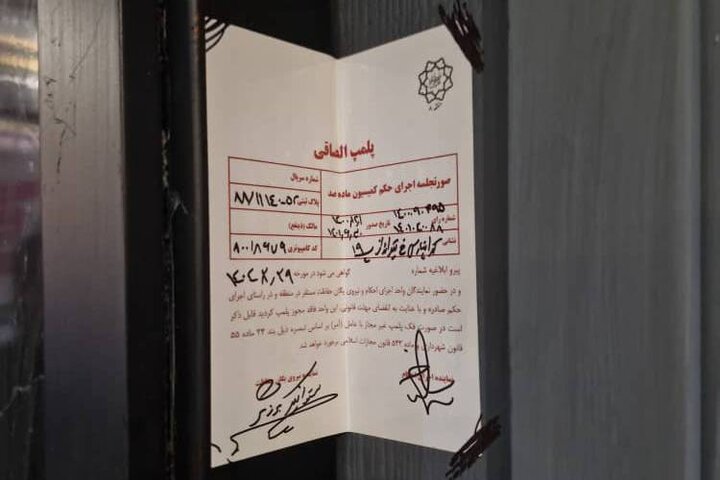 پلمپ الصاقی
صورتجلسه اجرای حکم کمیسیون ماده صد
شماره سریال
پلاک ثبتی
شماره رای ۱۴۰۰۹۰۴۹۵ تاریخ صدور
مالک (ذینفع)
نشانی
کد کامپیوتری ۸۰۰۱۸۹۷۹
پیرو ابلاغیه شماره گواهی می شود در مورخه ۱۴۰۲/۸/۲۹
و در حضور نمایندگان واحد اجرای احکام و نیروی یگان حفاظت مستقر در منطقه و در راستای اجرای
حکم صادره و با عنایت به انقضای مهلت قانونی، این واحد فاقد مجوز پلمپ گردید قابل ذکر
است در صورت فک پلمپ غیر مجاز با عامل (آمر) بر اساس تبصره ذیل بند ۲۴ ماده ۵۵
قانون شهرداری و ماده ۵۴۳ قانون مجازات اسلامی برخورد خواهد شد.
نماینده
نیروی یگان